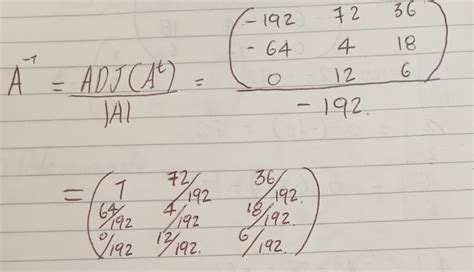 A⁻¹ = ADJ(Aᵗ)/|A| = (-192 72 36
-64 4 18
0 12 6)
/ -192.
= (1 72/192 36/192.
64/192 4/192 18/192.
0/192 12/192. 6/192.)